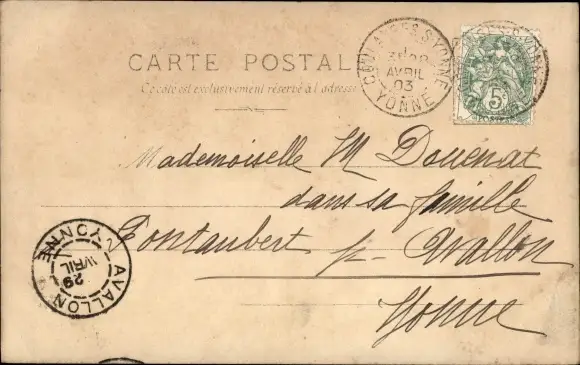 CARTE POSTALE
Ce côté est exclusivement réservé à l'adresse
COULANGES S YONNE
AVRIL
03
YONNE
5c
POSTES
Mademoiselle M Douénat
dans sa famille
Pontaubert pr Avallon
Yonne
AVALLON
29 AVRIL
YONNE